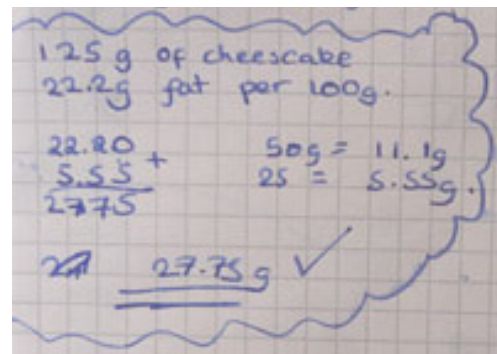 125 g of cheescake
22.2g fat per 100g.
22.20
5.55 +
2775
50g = 11.1g
25 = 5.55g.
27.75g ✓